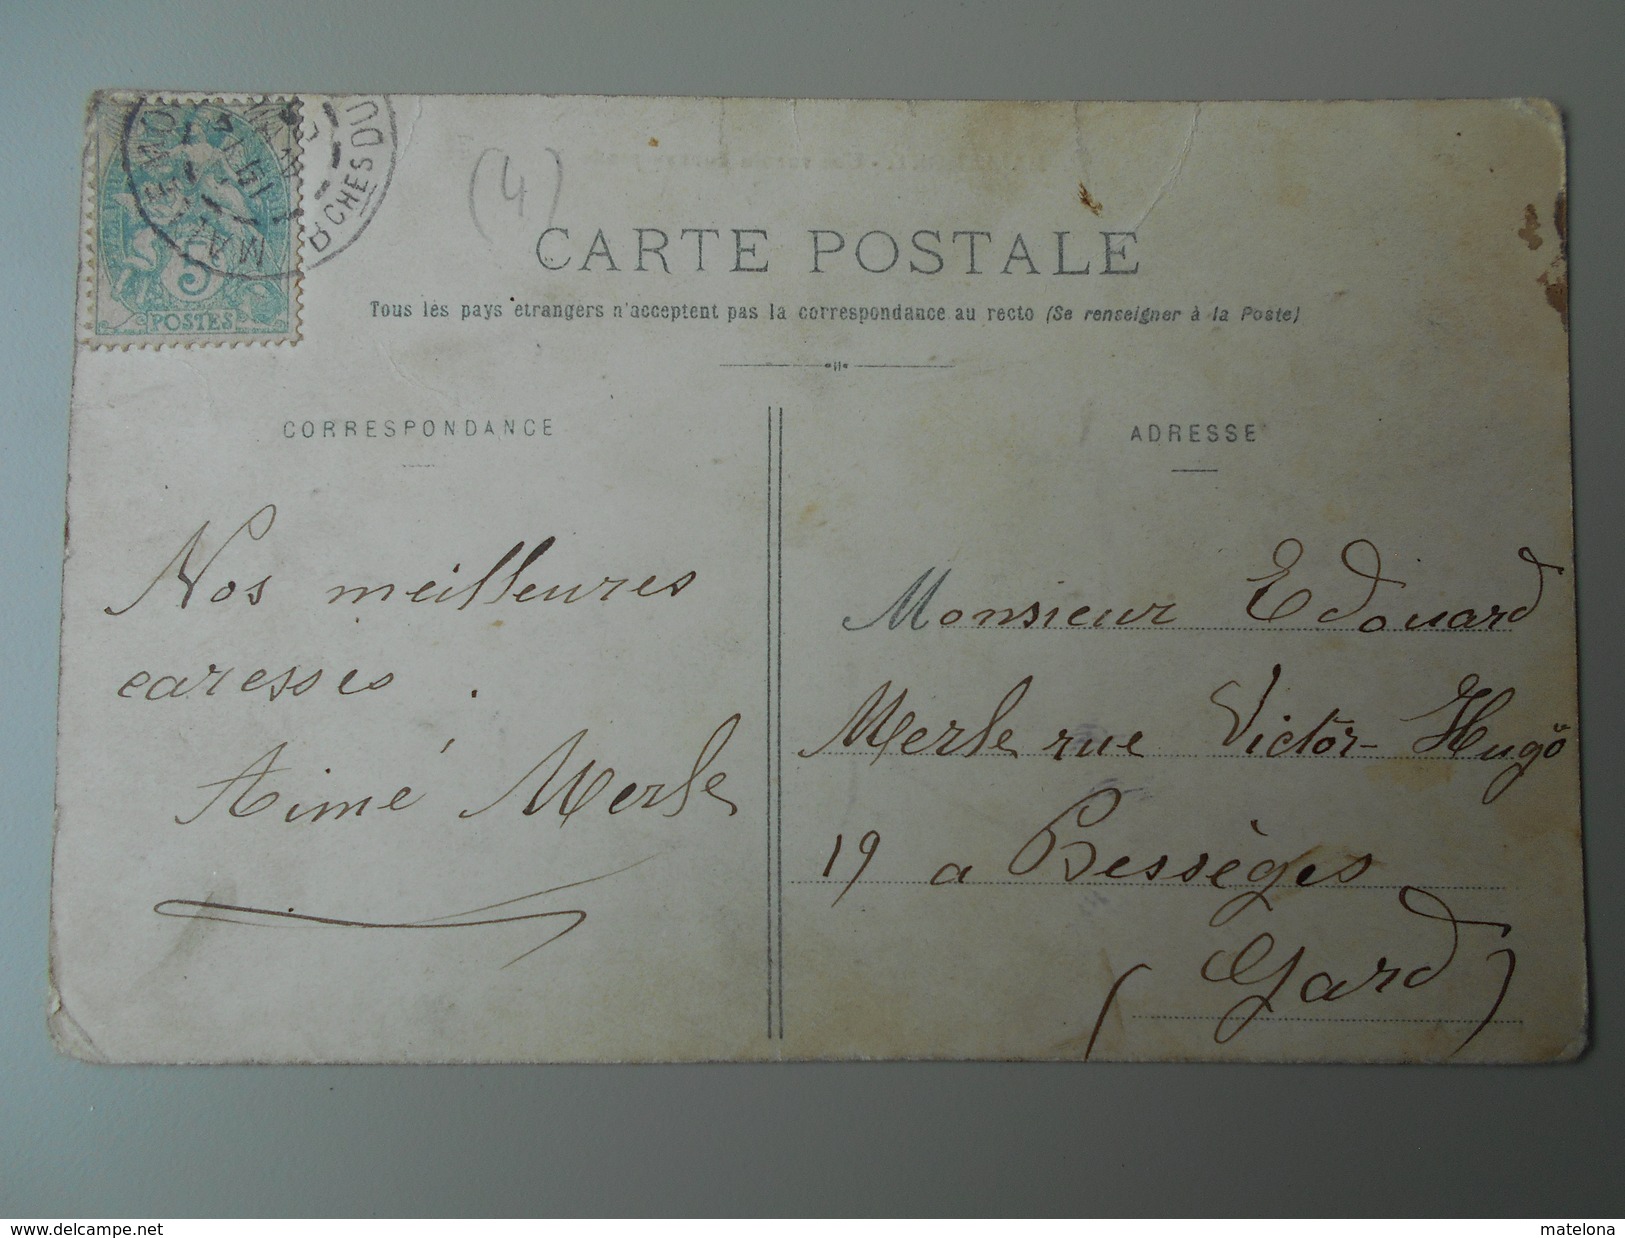 (4)
CARTE POSTALE
Tous les pays étrangers n'acceptent pas la correspondance au recto (Se renseigner à la Poste)
POSTES
BCHES DU
CORRESPONDANCE
Nos meilleures
caresses.
Aimé Merle
ADRESSE
Monsieur Edouard
Merle rue Victor-Hugo
19 a Bessèges
(Gard)
delcampe.net
matelona